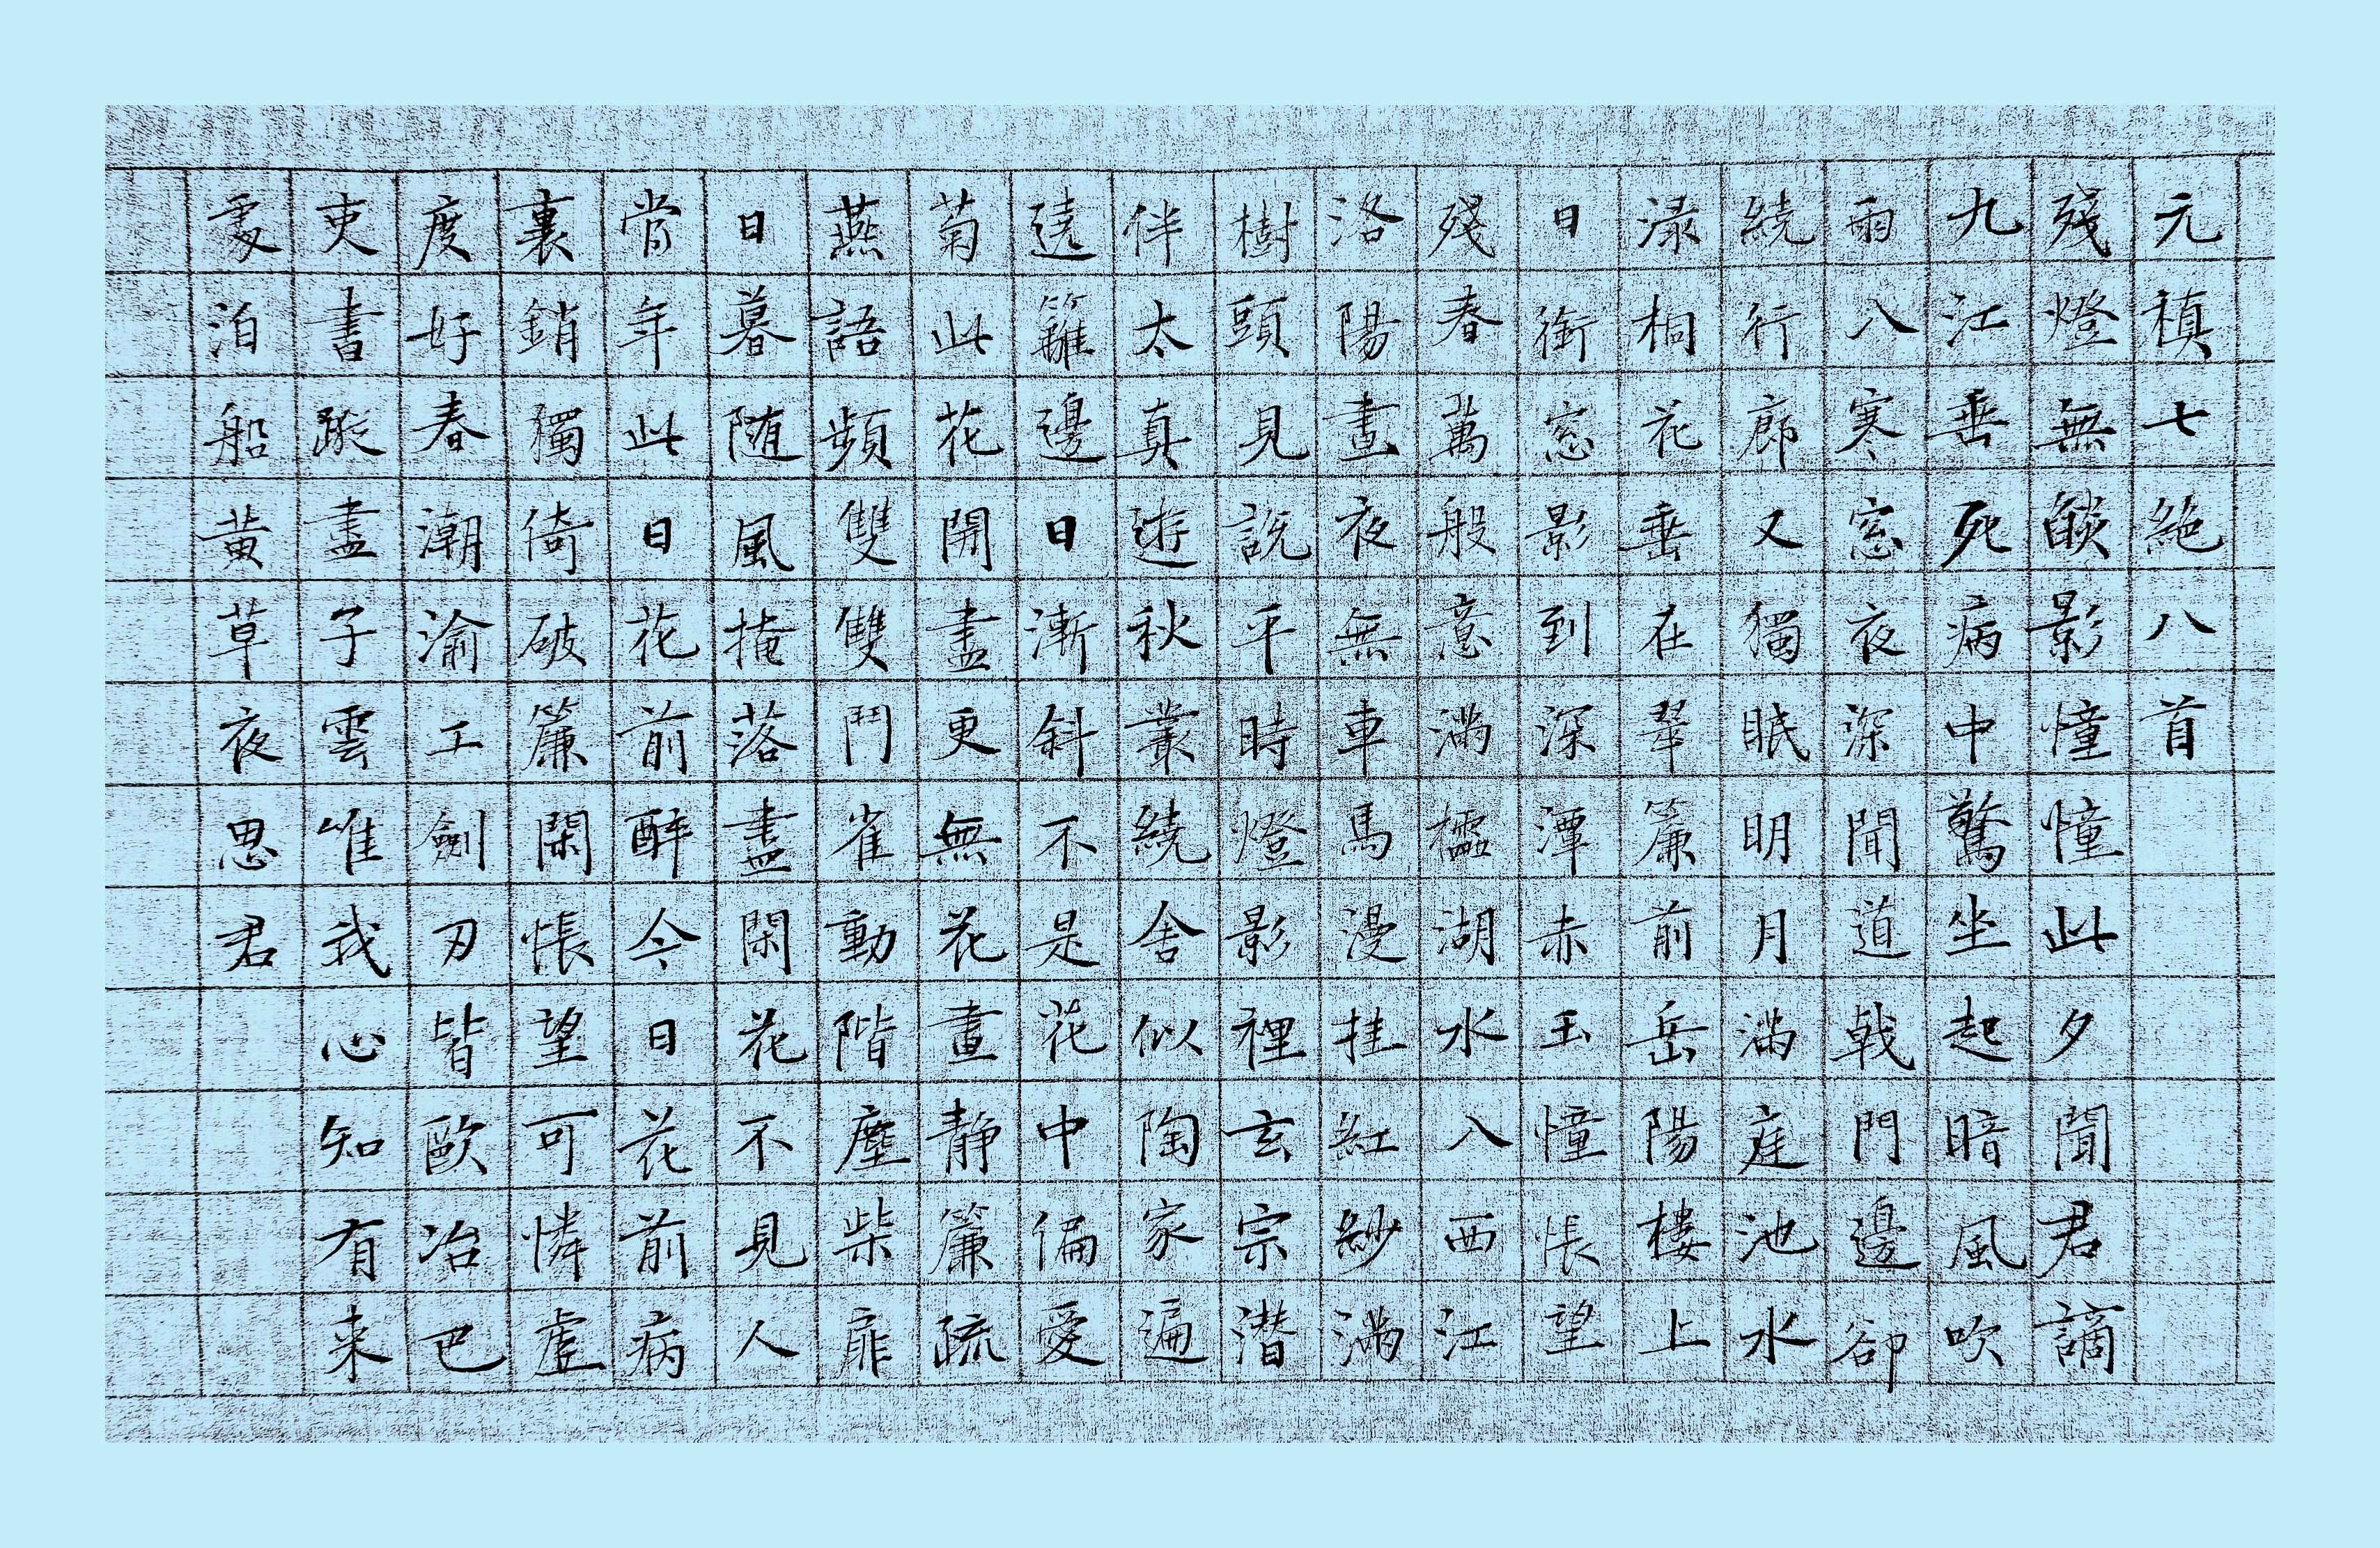 元稹七絶八首
殘燈無燄影憧憧此夕聞君謫
九江垂死病中驚坐起暗風吹
雨入寒窓夜深聞道戟門邊卻
繞行廊又獨眠明月滿庭池水
渌桐花垂在翠簾前岳陽樓上
日銜窓影到深潭赤玉憧悵望
殘春萬般意滿櫺湖水入西江
洛陽晝夜無車馬漫挂紅紗滿
樹頭見説平時燈影裡玄宗潜
伴太真遊秋叢繞舍似陶家遍
遶籬邊日漸斜不是花中偏愛
菊此花開盡更無花晝静簾疏
燕語頻雙雙鬥雀動階塵柴扉
日暮随風掩落盡閑花不見人
常年此日花前醉今日花前病
裏銷獨倚破簾閑悵望可憐虚
度好春潮渝工劍刃皆歐冶巴
吏書蹤盡子雲唯我心知有来
處泊船黄草夜思君